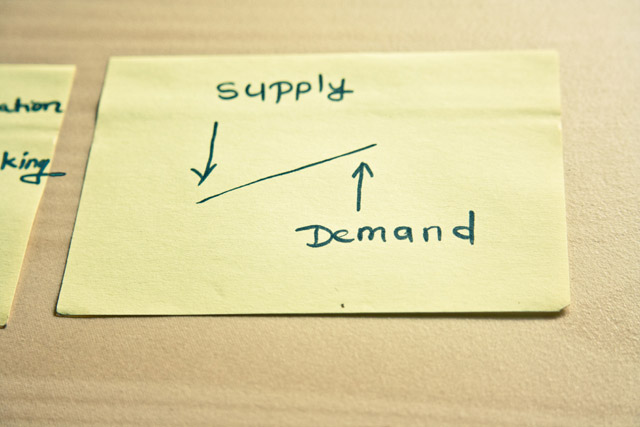 ation
king
Supply
Demand